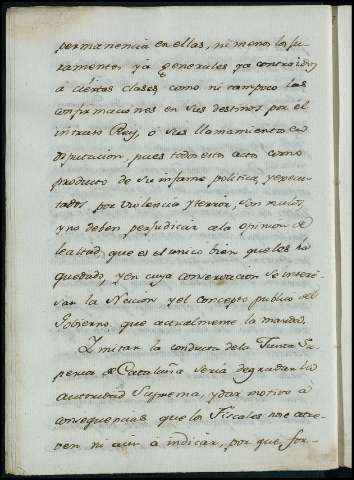 permanencia en ellas, ni menos los ju-
ramentos ya generales ya contraidos
á ciertas clases como ni tampoco las
confirmaciones en sus destinos por el
intruso Rey, ó sus llamamientos en
Diputacion, pues todos estos actos como
producto de su infame politica, y execu-
tados por violencia y terror, son nulos,
y no deben perjudicar á la opinion de
lealtad, que es el unico bien que les ha
quedado, y en cuya conservacion se intere-
san la Nacion y el concepto publico del
Gobierno, que actualmente la manda.
Ymitar la conducta de la Junta Su-
perior de Cataluña seria degradar la
autoridad Suprema, y dar motivo á
consequencias que los Fiscales no se atre-
ven ni aun á indicar, por que, for-